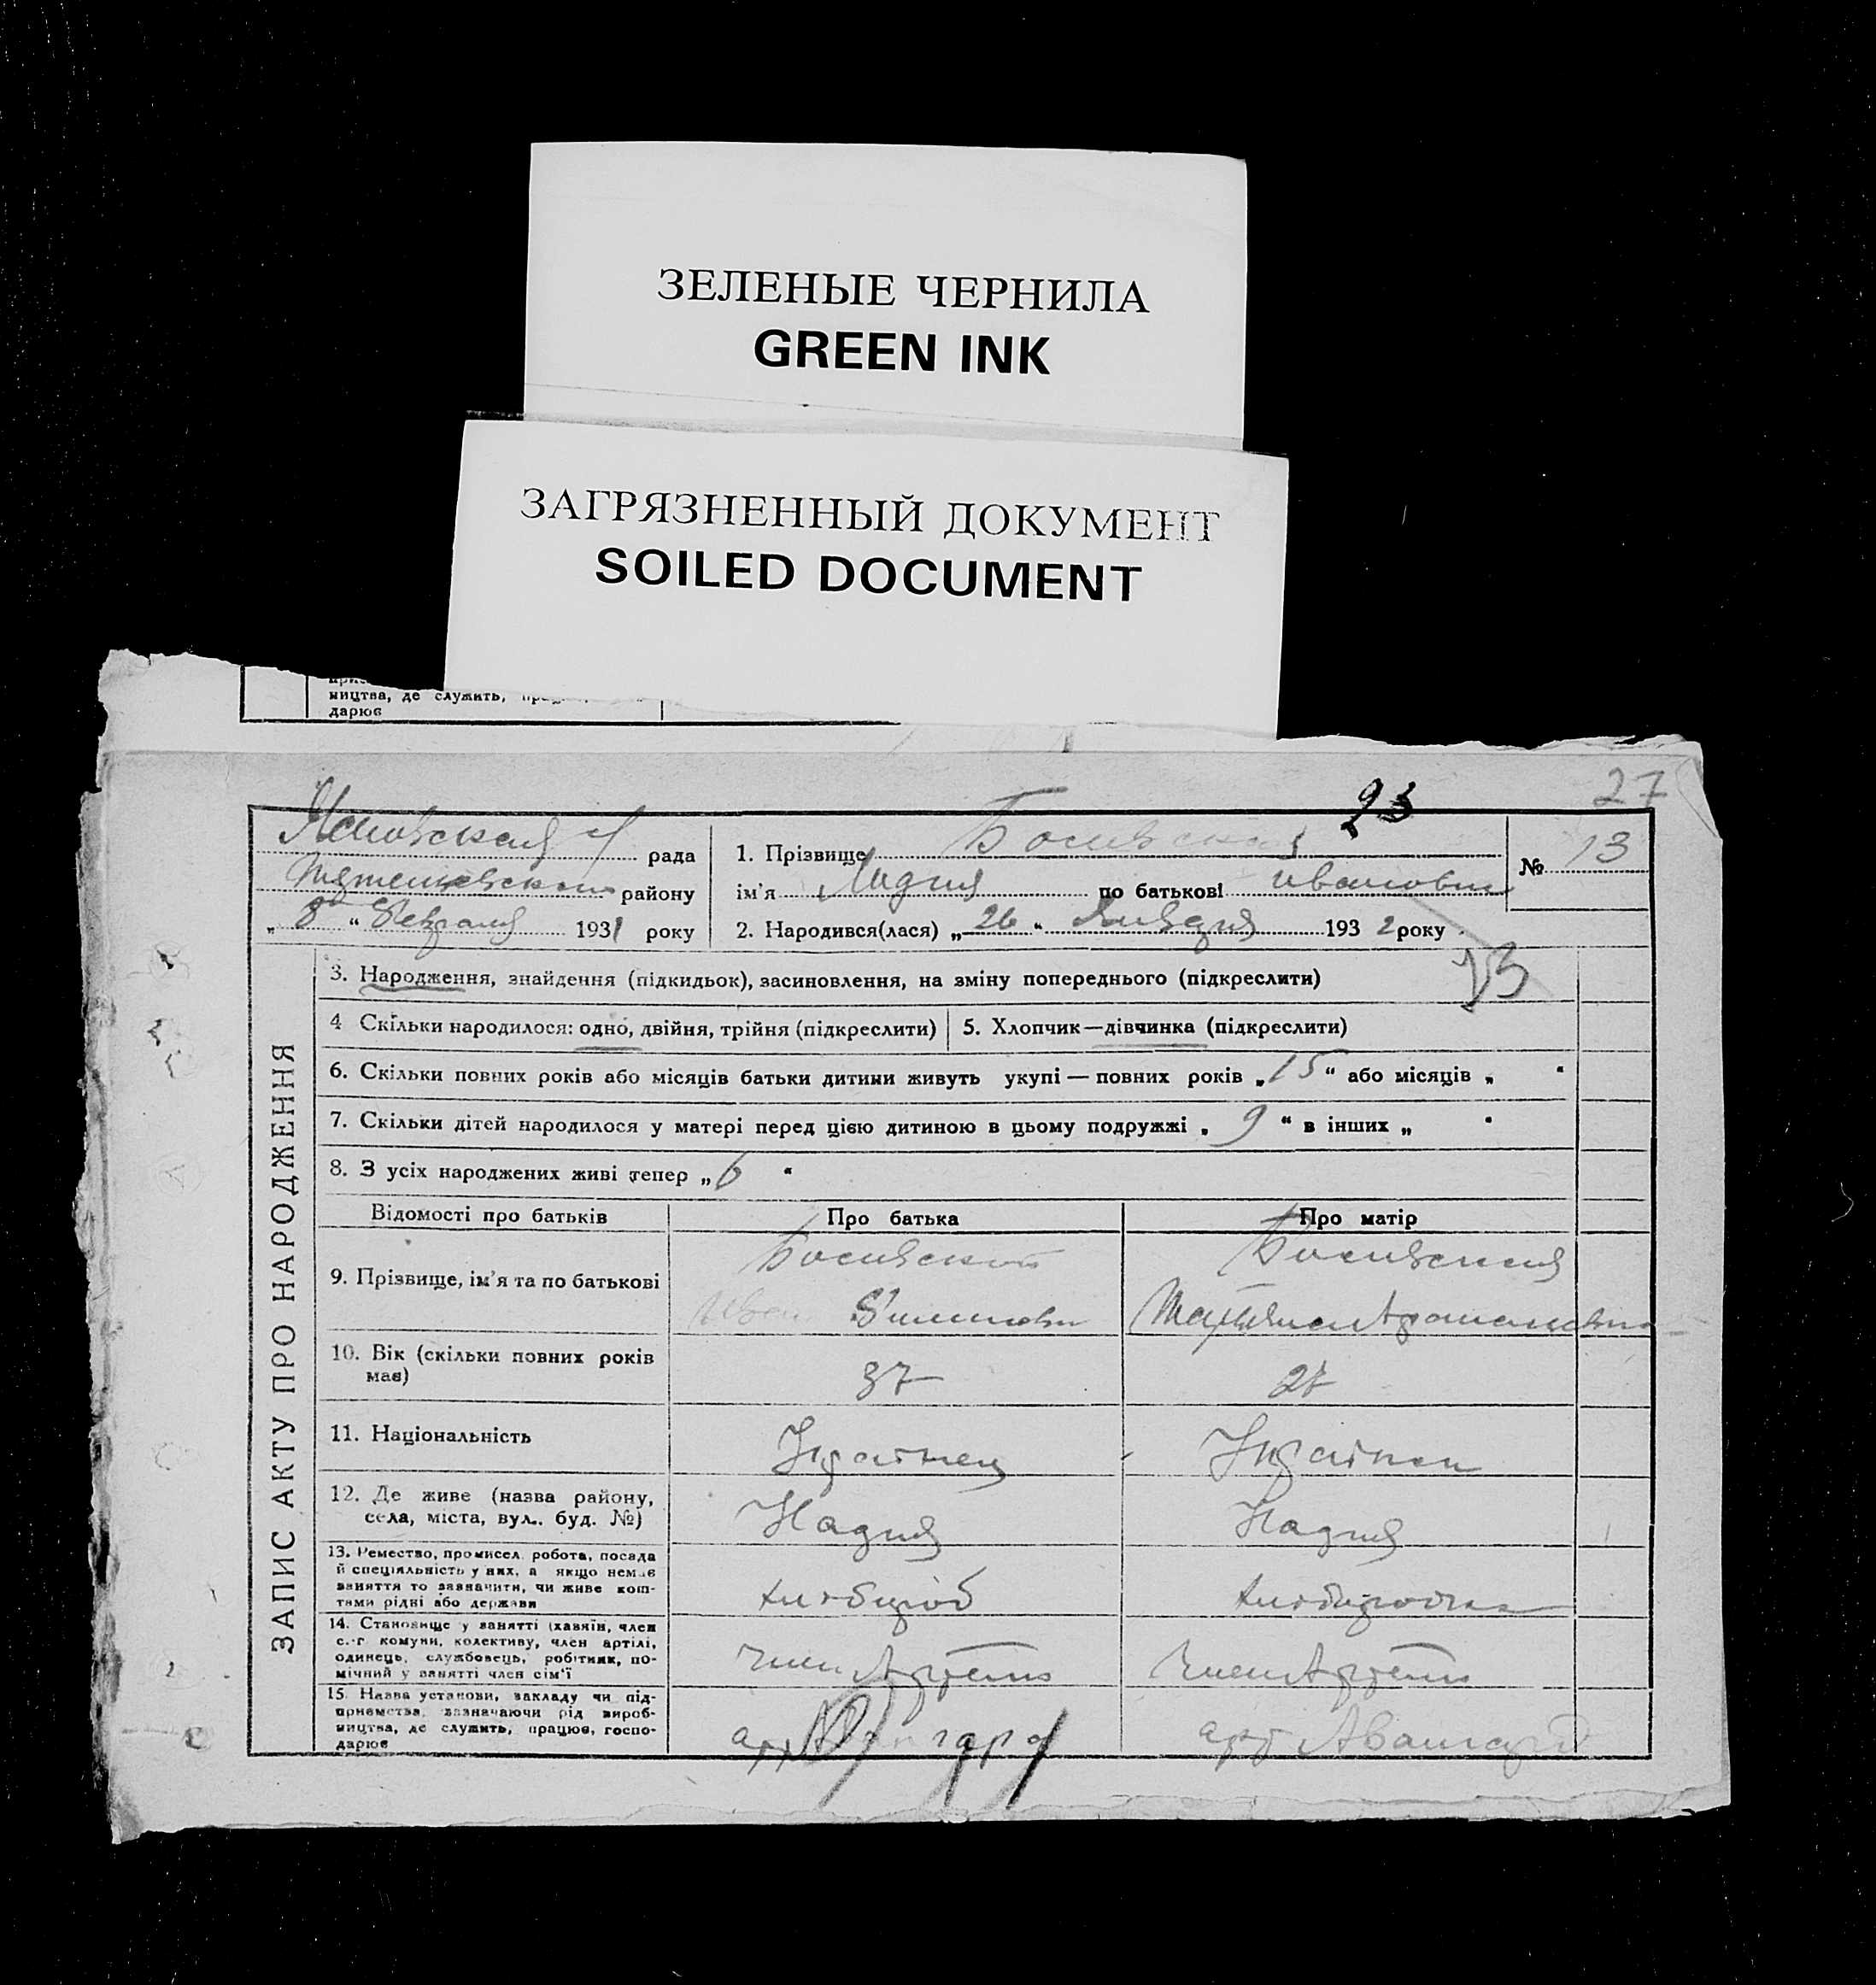 ЗЕЛЕНЫЕ ЧЕРНИЛА
GREEN INK
ЗАГРЯЗНЕННЫЙ ДОКУМЕНТ
SOILED DOCUMENT
ництва, де служить,
дарює
27
23
рада
району
„ 8 “ Февраля 1931 року
1. Прізвище
№ 13
ім'я Лидия по батькові Ивановна
2. Народився(лася) „ 26 “ Января 1932 року
13
ЗАПИС АКТУ ПРО НАРОДЖЕННЯ
3. Народження, знайдення (підкидьок), засиновлення, на зміну попереднього (підкреслити)
4 Скільки народилося: одно, двійня, трійня (підкреслити)
5. Хлопчик—дівчинка (підкреслити)
6. Скільки повних років або місяців батьки дитини живуть укупі — повних років „ 15 “ або місяців „ “
7. Скільки дітей народилося у матері перед цією дитиною в цьому подружжі „ 9 “ в інших „ “
8. З усіх народжених живі тепер „ 6 “
Відомості про батьків
Про батька
Про матір
9. Прізвище, ім'я та по батькові
Иван
10. Вік (скільки повних років має)
37
27
11. Національність
Украинец
Украинка
12. Де живе (назва району, села, міста, вул. буд. №)
Надия
Надия
13. Ремество, промисел робота, посада й спеціяльність у них, а якщо немає заняття то зазначити, чи живе коштами рідні або держави
хлібороб
хліборобка
14. Становище у занятті (хазяїн, член с.-г комуни, колективу, член артілі, одинець, службовець, робітник, помічний у занятті член сім'ї
член Артели
член Артели
15. Назва установи, закладу чи підприємства, зазначаючи рід виробництва, де служить, працює, господарює
арт Авангард